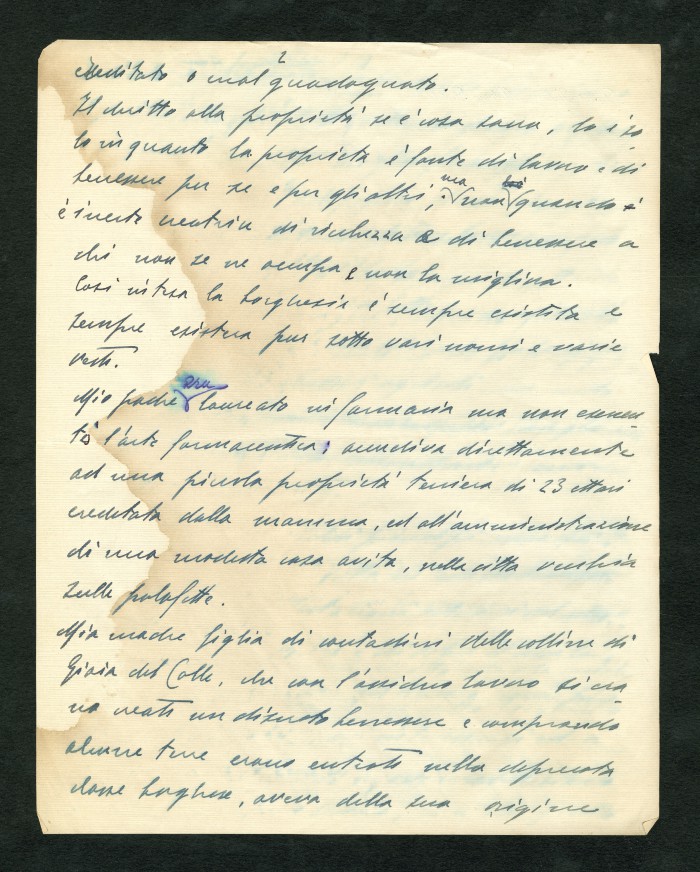 2
ereditato o mal guadagnato.
Il diritto alla proprietà se è cosa sana, lo è so
lo in quanto la proprietà è fonte di lavoro e di
benessere per se e per gli altri, ma non quando
è inerte matrice di ricchezza e di benessere a
chi non se ne occupa e non la migliora.
Così intesa la borghesia è sempre esistita e
sempre esisterà pur sotto vari nomi e varie
vesti.
Mio padre era laureato in farmacia ma non eserci
tò l'arte farmaceutica; accudiva direttamente
ad una piccola proprietà terriera di 23 ettari
ereditata dalla mamma, ed all'amministrazione
di una modesta casa avita, nella città vecchia
sulle palafitte.
Mia madre figlia di contadini delle colline di
Gioia del Colle, che con l'assiduo lavoro si era
no creati un discreto benessere e comprando
alcune terre erano entrati nella deprecata
classe borghese, aveva della sua origine